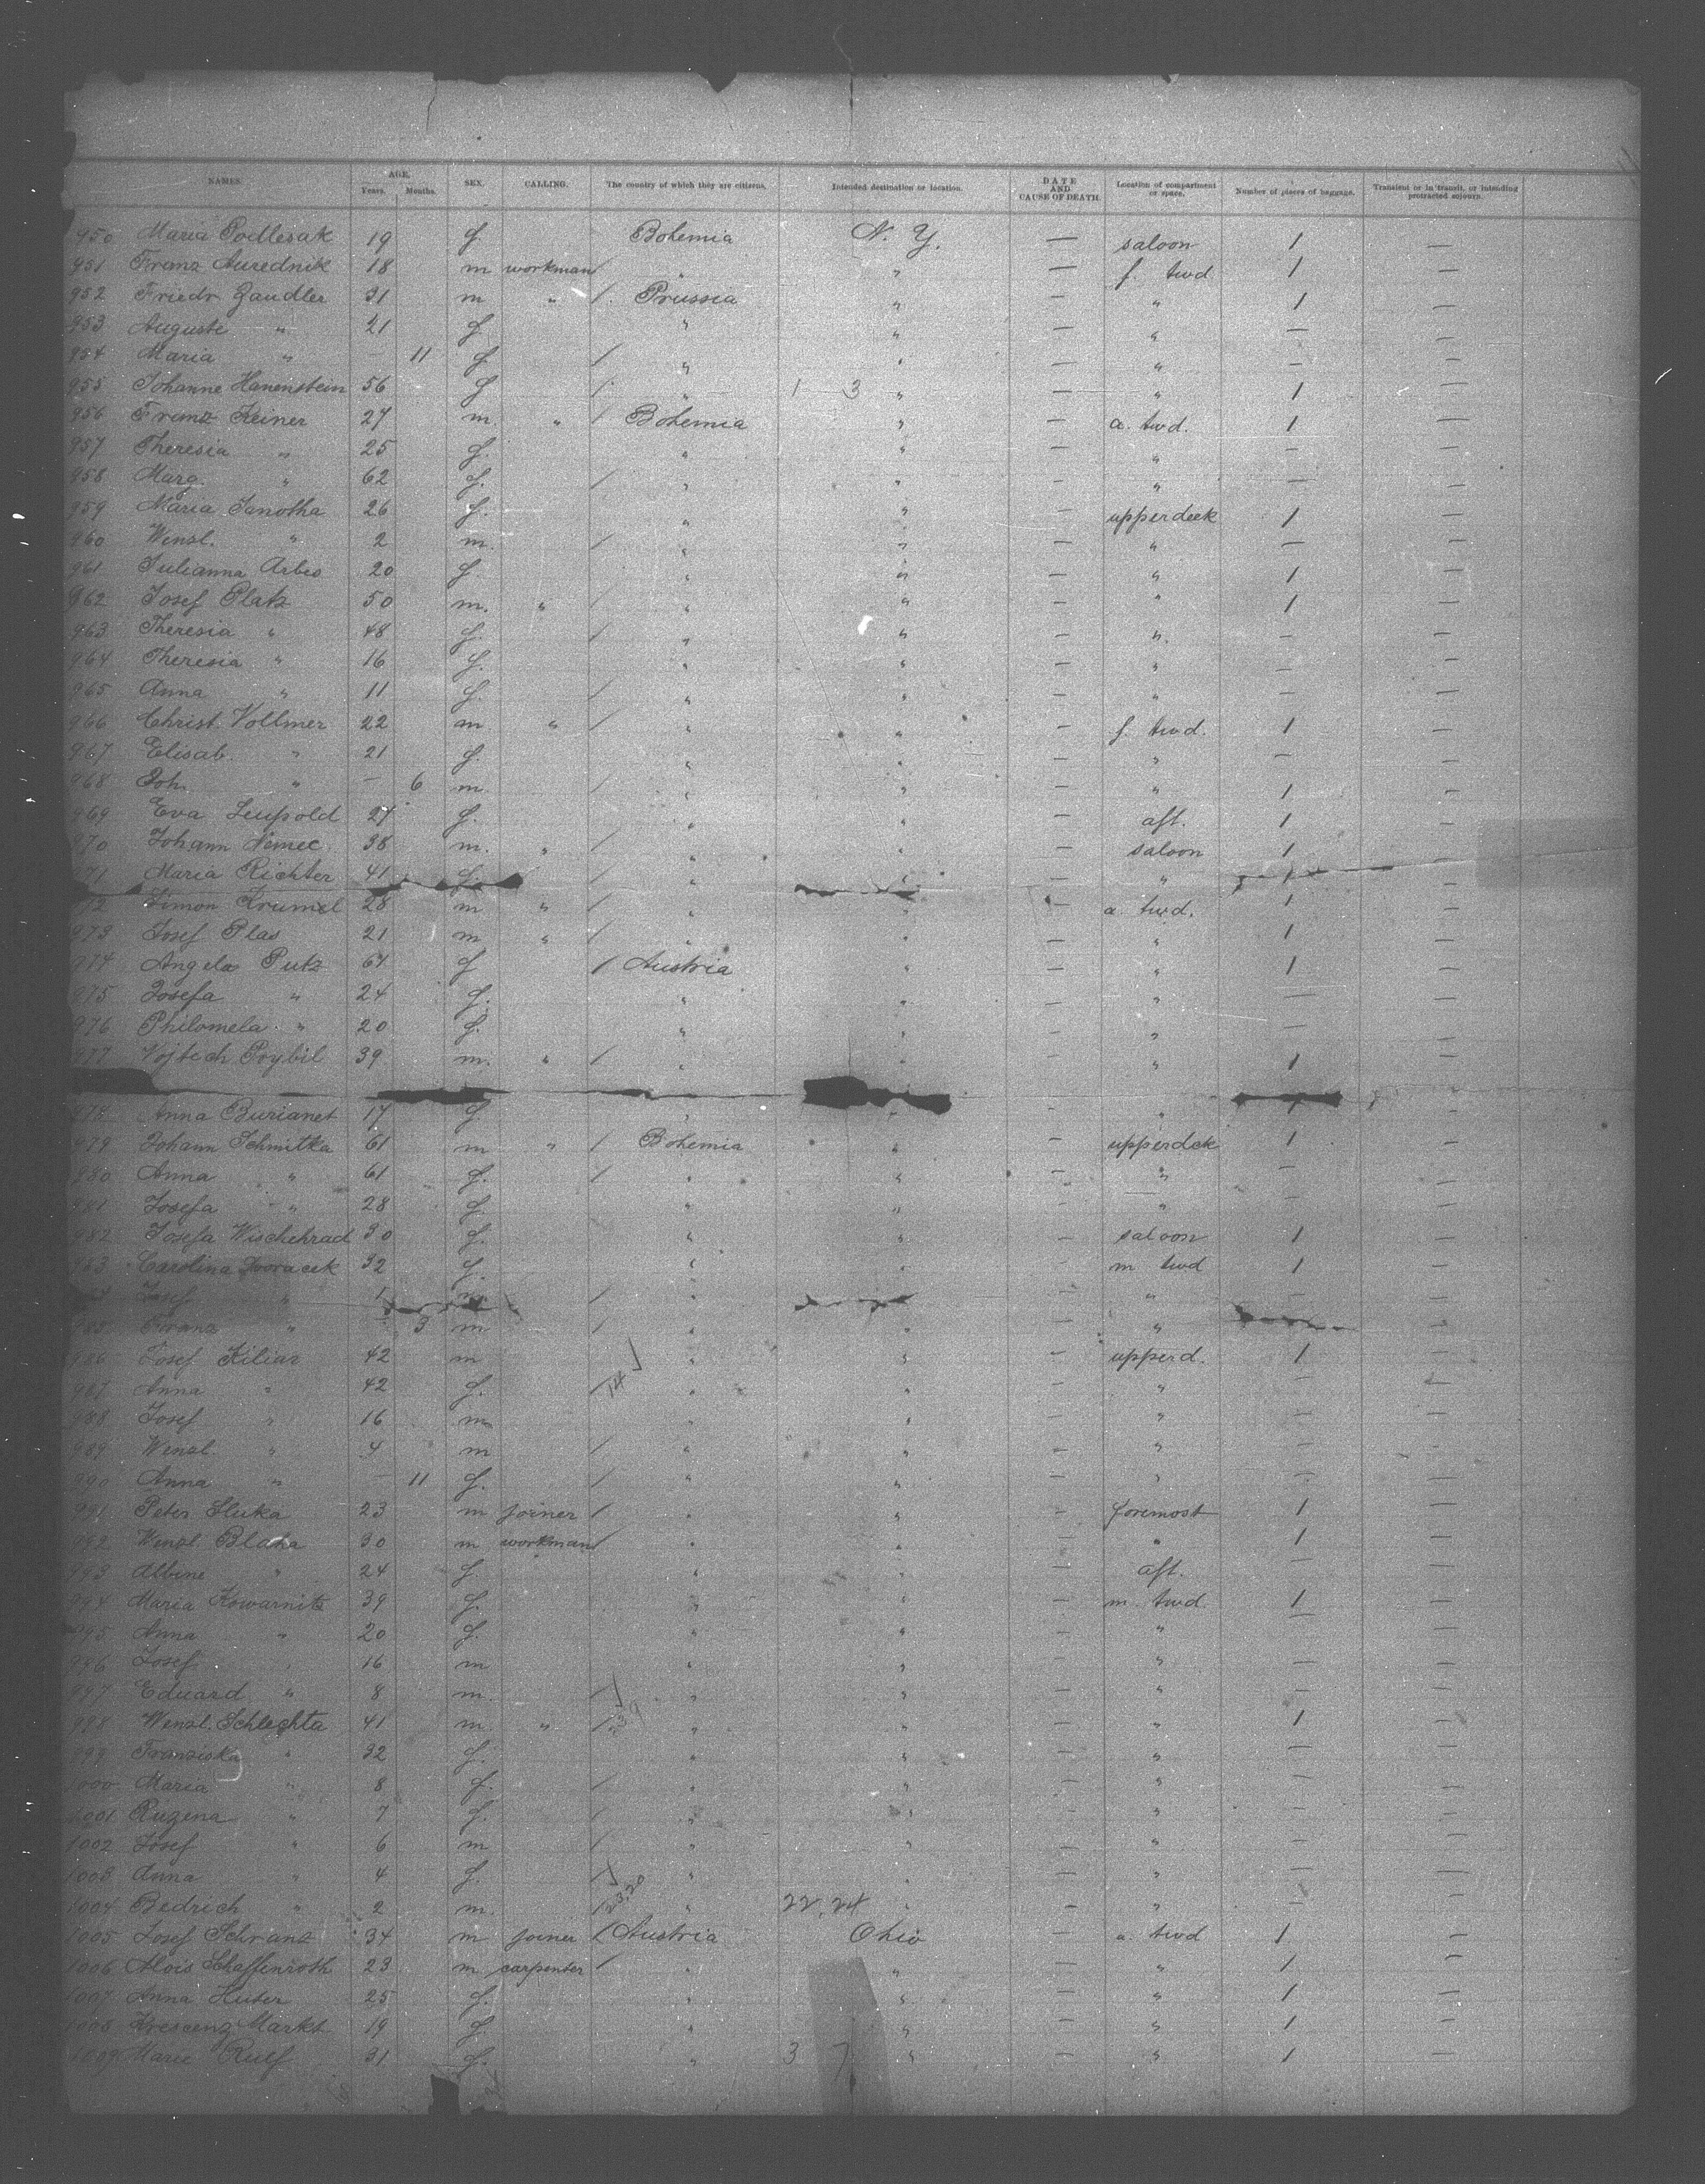 NAMES. AGE. Years. Months. SEX. CALLING. The country of which they are citizens. Intended destination or location. DATE AND CAUSE OF DEATH. Location of compartment or space. Number of pieces of baggage. Transient or in transit, or intending protracted sojourn.
950 Maria Podlesak 19 f. Bohemia N. Y. — saloon 1 —
951 Franz Aurednik 18 m workman / " " — f. twd. 1 —
952 Friedr Zaudler 31 m " / Prussia " — " 1 —
953 Auguste " 21 f. " " — " — —
954 Maria " — 11 f. / " " — " — —
955 Johanne Hanenstein 56 f / " 1 3 " — " 1 —
956 Franz Keiner 27 m. " / Bohemia " — a. twd. 1 —
957 Theresia " 25 f. " " — " — —
958 Marg. " 62 f. / " " — " — —
959 Maria Janotha 26 f. " " — upperdeck 1 —
960 Wenzl. " 2 m. / " " — " — —
961 Julianna Arbes 20 f. " " — " 1 —
962 Josef Platz 50 m. " / " " — " 1 —
963 Theresia " 48 f. / " " — " — —
964 Theresia " 16 f. " " — " — —
965 Anna " 11 f. / " " — " — —
966 Christ. Vollmer 22 m. " / " " — f. twd. 1 —
967 Elisab. " 21 f. " " — " — —
968 Joh. " — 6 m. / " " — " 1 —
969 Eva Leupold 27 f. " " — aft. 1 —
970 Johann Nemec 38 m. " / " " — saloon 1 —
971 Maria Richter 41 f. / " " " 1 —
972 Simon Krumel 28 m " / " " — a. twd. 1 —
973 Josef Plas 21 m " / " " — " 1 —
974 Angela Putz 64 f / Austria " — " 1 —
975 Josefa " 24 f. " " — " — —
976 Philomela " 20 f. " " — " — —
977 Vojtech Prybil 39 m. " / " " — " 1 —
978 Anna Burianet 17 f. " " — " 1 —
979 Johann Schmitka 61 m " / Bohemia " — upperdck 1 —
980 Anna " 61 f. / " " — " — —
981 Josefa " 28 f. " " — " — —
982 Josefa Wischehrad 30 f. " " — saloon 1 —
983 Carolina Dvoracek 32 f. " " — m twd 1 —
Josef " 1 m. / " " — " — —
985 Franz " — 3 m / " " — " —
986 Josef Kilian 42 m " " — upperd. 1 —
987 Anna " 42 f. / 14 " " — " — —
988 Josef " 16 m " " — " — —
989 Wenzl. " 4 m / " " — " — —
990 Anna " — 11 f. / " " — " — —
991 Peter Sluka 23 m joiner / " " — foremost 1 —
992 Wenzl Blaha 30 m workman / " " — " 1 —
993 Albine " 24 f. " " — aft. — —
994 Maria Kowarnits 39 f. " " — m. twd. 1 —
995 Anna " 20 f. " " — " — —
996 Josef " 16 m " " — " — —
997 Eduard " 8 m. / " " — " — —
998 Wenzl. Schlechta 41 m. " / " " — " 1 —
999 Franziska " 32 f. " " — " — —
1000 Maria " 8 f. / " " — " — —
1001 Ruzena " 7 f. / " " — " — —
1002 Josef " 6 m / " " — " — —
1003 Anna " 4 f. / " " — " — —
1004 Bedrich " 2 m. / 23,20 " 22,24 " — " — —
1005 Josef Schranz 34 m joiner / Austria Ohio — a. twd 1 —
1006 Alois Schaffenroth 23 m carpenter / " " — " 1 —
1007 Anna Huter 25 f. " " — " 1 —
1008 Krescenz Markt 19 f " " — " 1 —
1009 Marie Ruef 31 f. " 3 7 " — " 1 —